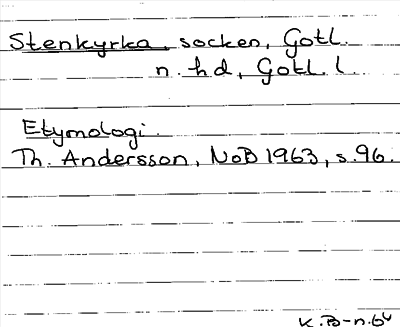 Stenkyrka, socken, Gotl.
n. hd, Gotl. l.
Etymologi.
Th. Andersson, NoB 1963, s. 96.
K.B-n.